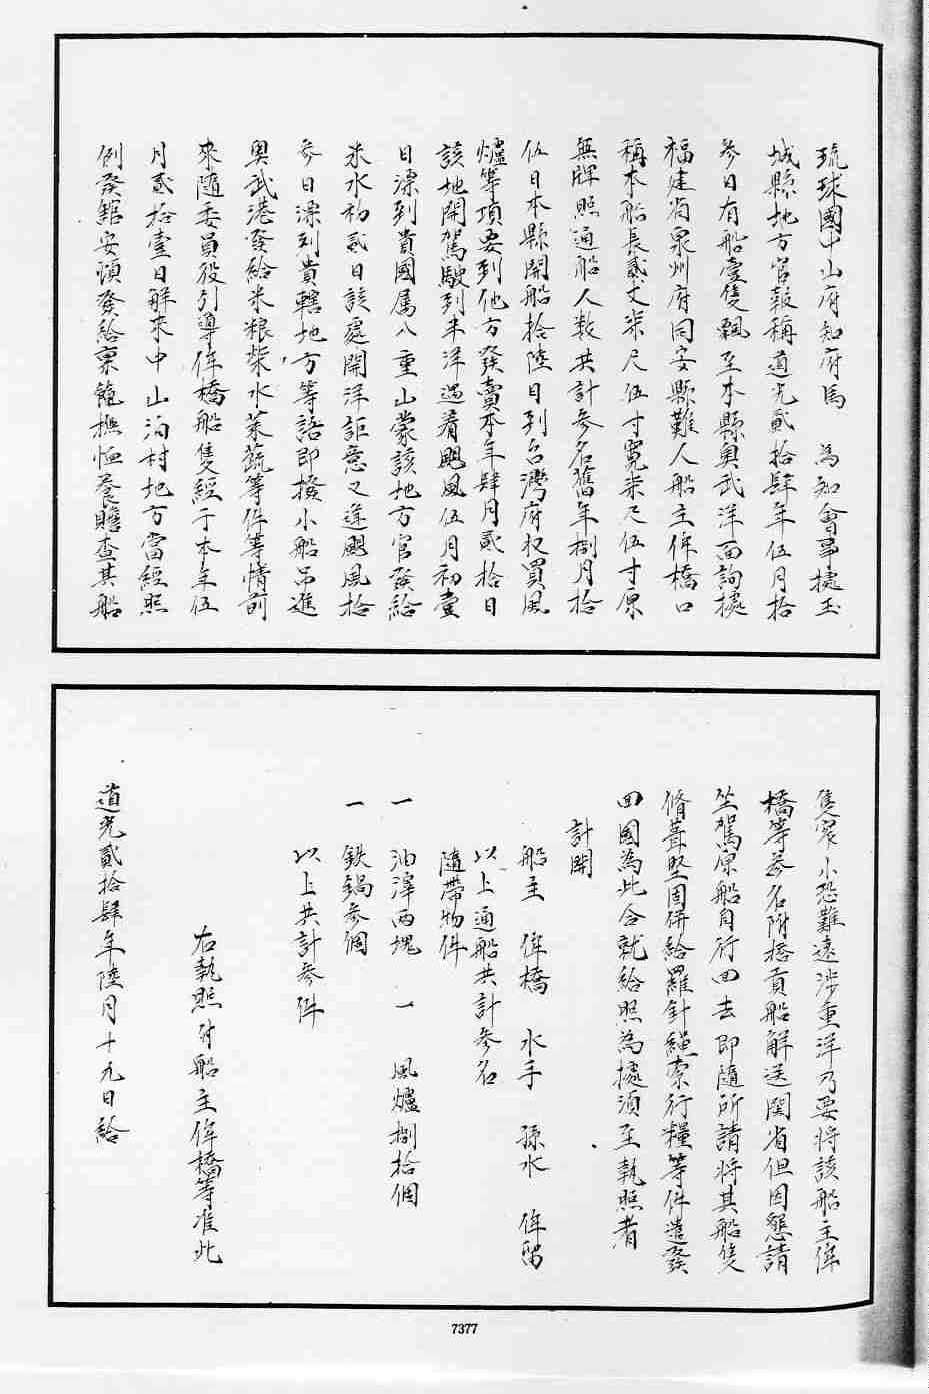 琉球國中山府知府馬　為知會事據玉
城縣地方官報稱道光貳拾肆年伍月拾
參日有船壹隻飄至本縣奧武洋面詢據
福建省泉州府同安縣難人船主侔橋口
稱本船長貳丈柒尺伍寸寬柒尺伍寸原
無牌照通船人數共計參名舊年捌月拾
伍日本縣開船拾陸日到台灣府收買風
爐等項要到他方發賣本年肆月貳拾日
該地開駕駛到半洋遇着颶風伍月初壹
日漂到貴國属八重山蒙該地方官發給
米水初貳日該處開洋詎意又遭颶風拾
參日漂到貴轄地方等語即撥小船吊進
奧武港發給米粮柴水菜蔬等件等情前
來隨委員役引導侔橋船隻經于本年伍
月貳拾壹日解來中山泊村地方當經照
例發館安頓發給稟餼撫恤養贍查其船
隻窄小恐難遠涉重洋乃要將該船主侔
橋等參名附搭貢船解送閩省但因懇請
坐駕原船自行回去即隨所請將其船隻
脩葺堅固併給羅針繩索行糧等件遣發
回國為此合就給照為據須至執照者
計開
船主　侔橋　水手　孫水　侔留
以上通船共計參名
隨帶物件
一　油滓両塊　一　風爐捌拾個
一　鉄鍋參個
以上共計參件
右執照付船主侔橋等准此
道光貳拾肆年陸月十九日給
7377